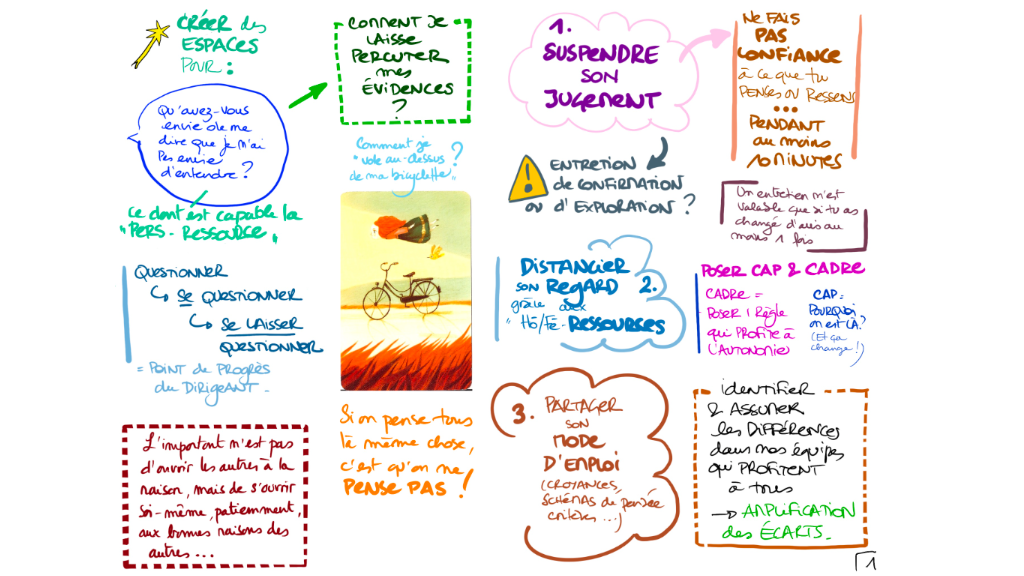 CRÉER des
ESPACES
POUR :
Qu'avez-vous
envie de me
dire que je n'ai
pas envie
d'entendre ?
Ce dont est capable la
"PERS-RESSOURCE"
QUESTIONNER
SE QUESTIONNER
SE LAISSER
QUESTIONNER
= POINT DE PROGRÈS
du DIRIGEANT -
L'important n'est pas
d'ouvrir les autres à la
raison, mais de s'ouvrir
soi-même, patiemment,
aux bonnes raisons des
autres ...
COMMENT JE
LAISSE
PERCUTER
mes
ÉVIDENCES
?
Comment je
"vole au-dessus
de ma bicyclette" ?
Si on pense tous
la même chose,
c'est qu'on ne
PENSE PAS !
1.
SUSPENDRE
SON
JUGEMENT
ENTRETIEN
de CONFIRMATION
ou d'EXPLORATION ?
DISTANCIER
son REGARD 2.
grâce aux
"Ho/Fe-RESSOURCES
3. PARTAGER
SON
MODE
D'EMPLOI
(CROYANCES,
SCHÉMAS de pensée
critères ...)
NE FAIS
PAS
CONFIANCE
à ce que tu
PENSES OU RESSENS
...
PENDANT
au moins
10 MINUTES
Un entretien n'est
valable que si tu as
changé d'avis au
moins 1 fois
POSER CAP & CADRE
CADRE =
POSER 1 RÈGLE
qui PROFITE à
L'AUTONOMIE
CAP =
POURQUOI
on est LÀ ?
(Et ça
change !)
identifier
& ASSUMER
les DIFFÉRENCES
dans nos équipes
qui PROFITENT
à tous
→ AMPLIFICATION
des ÉCARTS.
1